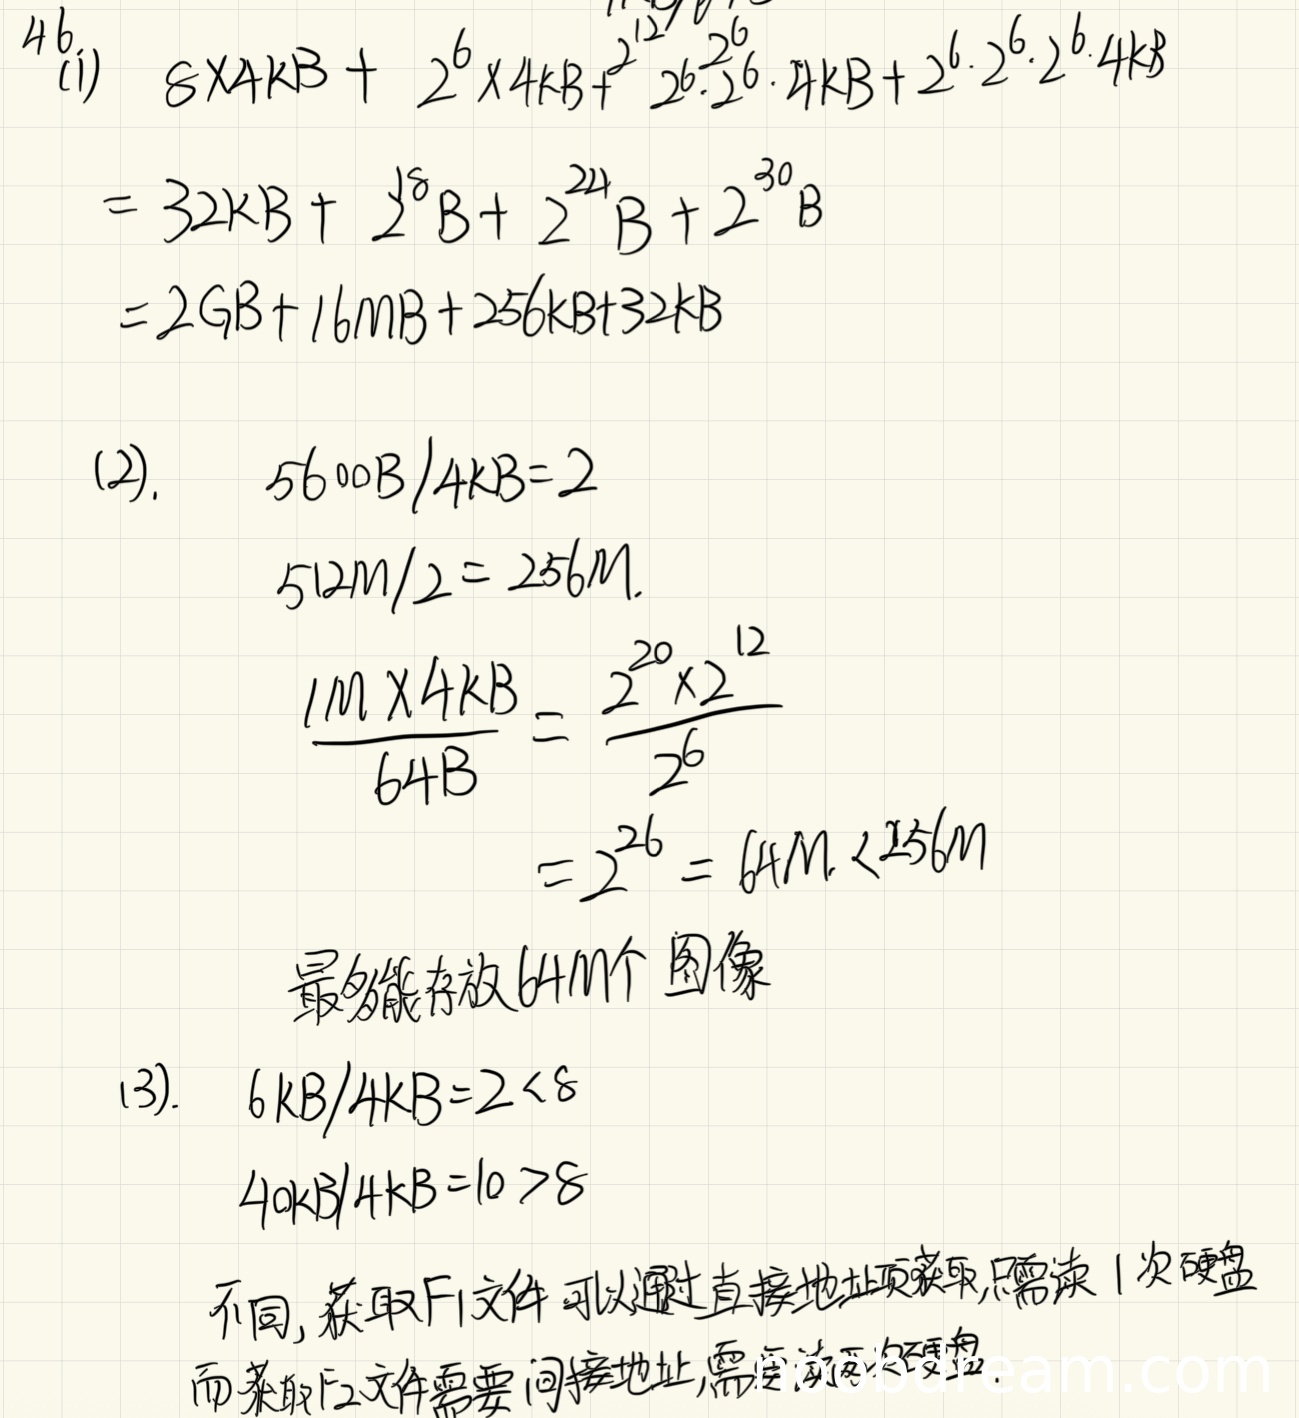 46.
(1) 8×4KB + 2^6×4KB + 2^6·2^6·4KB + 2^6·2^6·2^6·4KB
2^12 2^6
= 32KB + 2^18B + 2^24B + 2^30B
= 2GB + 16MB + 256KB + 32KB
(2). 5600B/4KB = 2
512M/2 = 256M.
1M×4KB / 64B = 2^20×2^12 / 2^6
= 2^26 = 64M. < 256M
最多能存放64M个图像
(3). 6KB/4KB = 2 < 8
40KB/4KB = 10 > 8
不同, 获取F1文件可以通过直接地址项获取,只需读1次硬盘
而获取F2文件需要间接地址,需要读两次硬盘.
noobdream.com